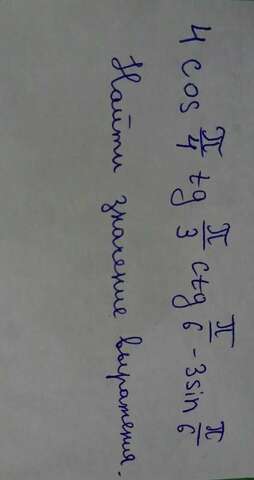 4 cos π/4 tg π/3 ctg π/6 - 3 sin π/6
Найти значение выражения.